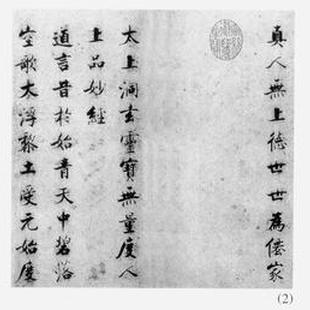 真人無上德世世爲僊家
太上洞玄靈寶無量度人
上品妙經
道言昔於始青天中碧落
空歌大浮黎土受元始度
(2)